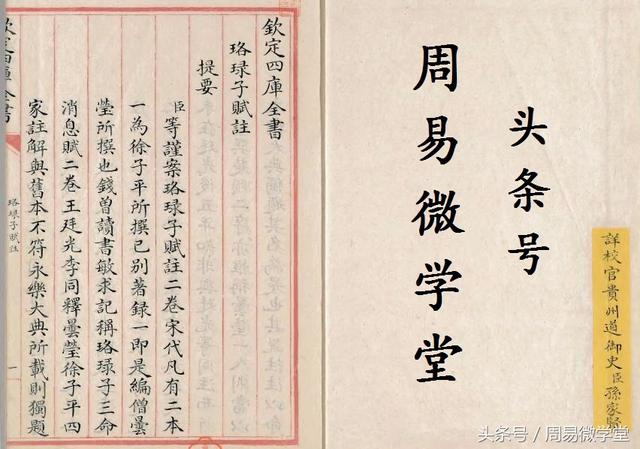 欽定四庫全書
珞琭子賦註
提要
臣等謹案珞琭子賦註二卷宋代凡有二本
一為徐子平所撰已别著録一即是編僧曇
瑩所撰也錢曽讀書敏求記稱珞琭子三命
消息賦二卷王廷光李同釋曇瑩徐子平四
家註解與舊本不符永樂大典所載則獨題
欽定四庫全書
珞琭子賦註
一
头条号
周易微学堂
詳校官貴州道御史臣孫家賢
头条号 / 周易微学堂